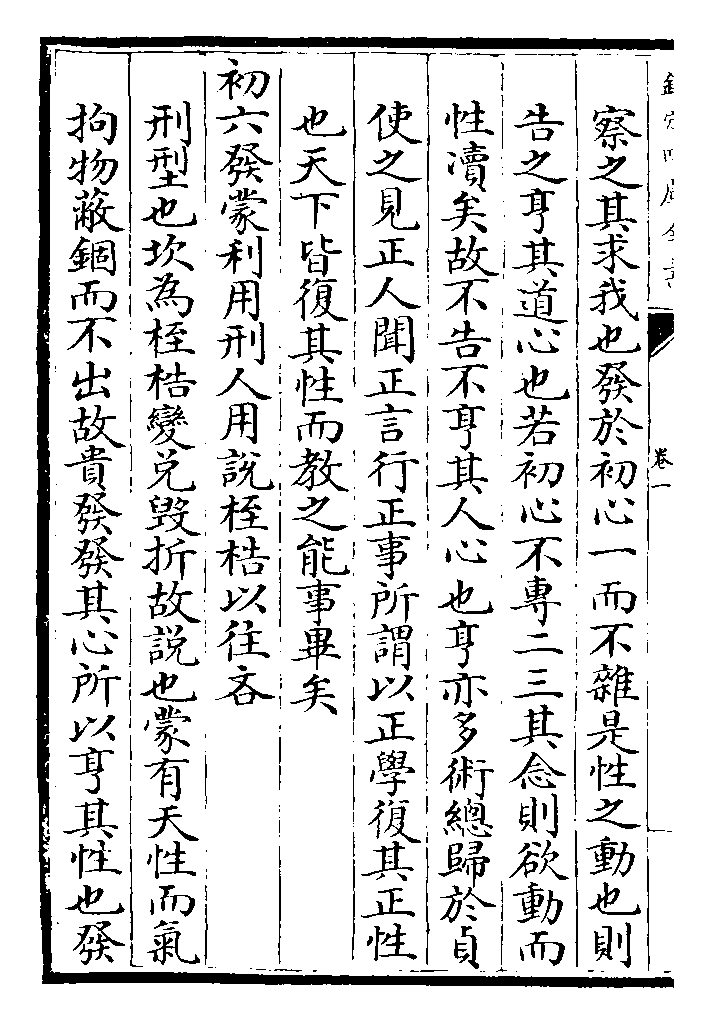 欽定四庫全書
卷一
察之其求我也發於初心一而不雜是性之動也則
告之亨其道心也若初心不專二三其念則欲動而
性瀆矣故不告不亨其人心也亨亦多術總歸於貞
使之見正人聞正言行正事所謂以正學復其正性
也天下皆復其性而教之能事畢矣
初六發蒙利用刑人用説桎梏以往吝
刑型也坎為桎梏變兑毁折故説也蒙有天性而氣
拘物蔽錮而不出故貴發發其心所以亨其性也發